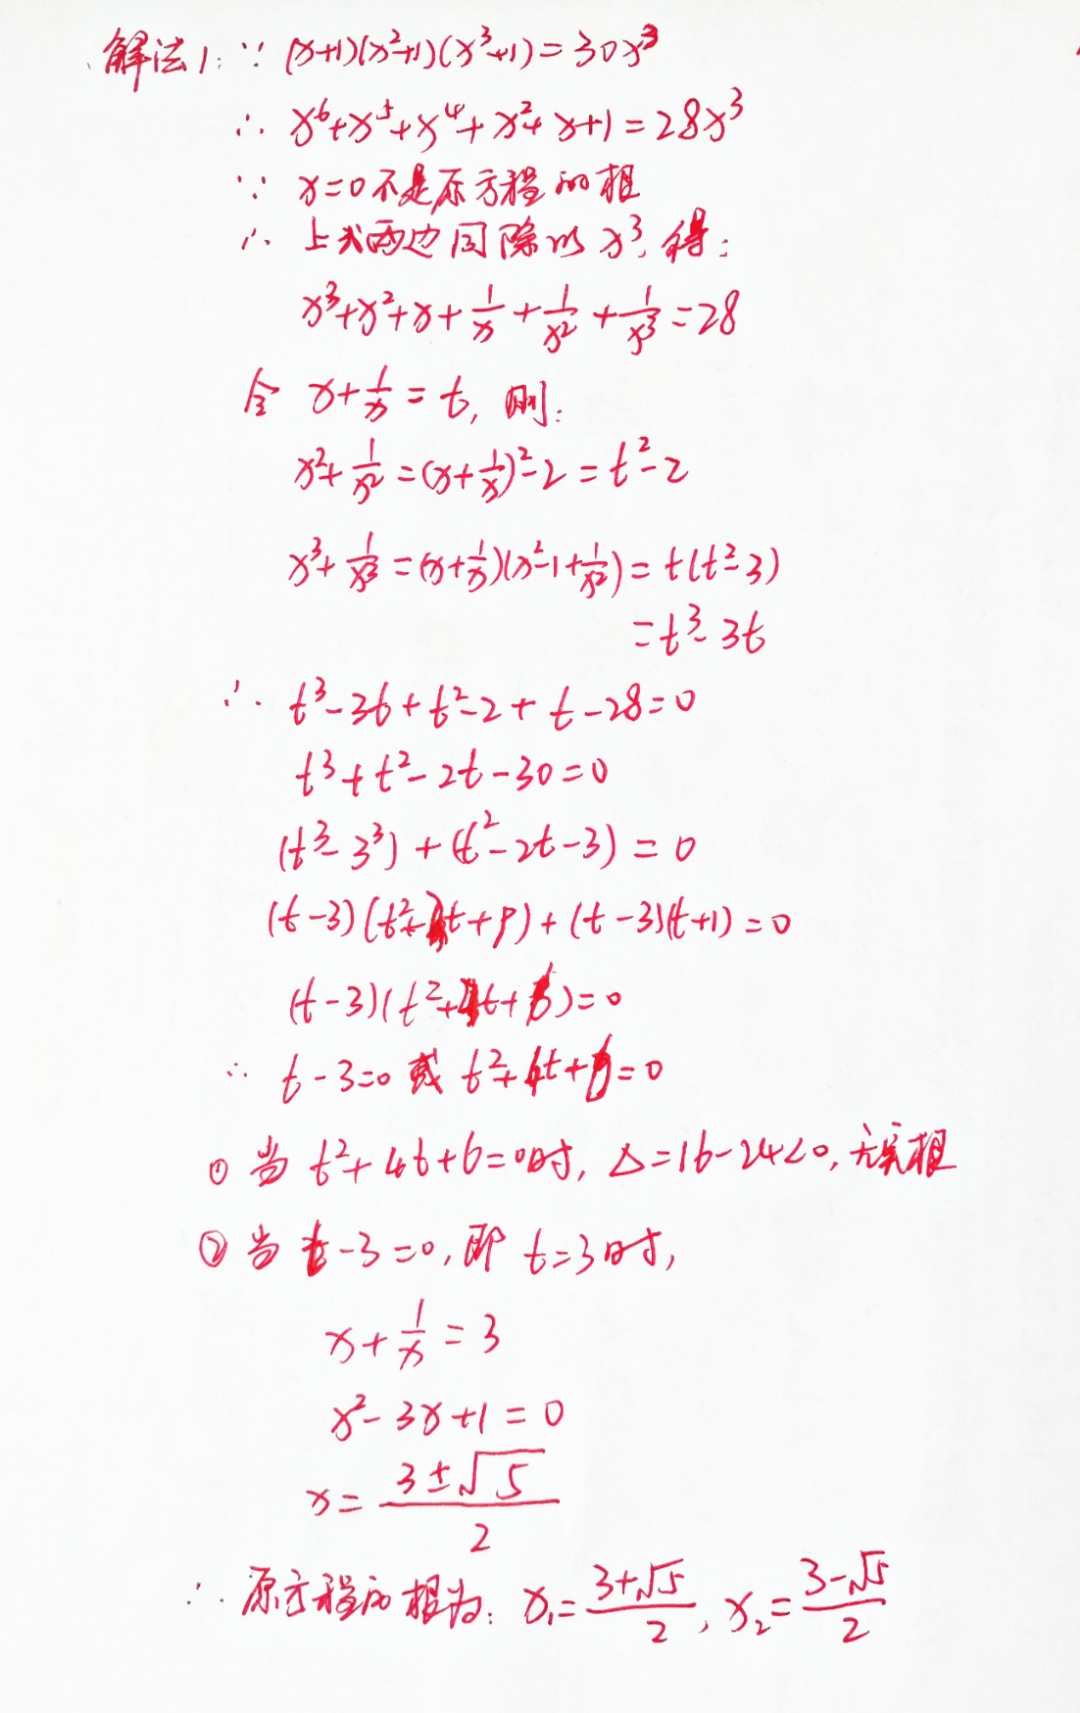 解法1: ∵ (x+1)(x²+1)(x³+1)=30x³
∴ x⁶+x⁵+x⁴+x²+x+1=28x³
∵ x=0不是原方程的根
∴ 上式两边同除以x³,得:
x³+x²+x+1/x+1/x²+1/x³=28
令 x+1/x=t, 则:
x²+1/x²=(x+1/x)²-2=t²-2
x³+1/x³=(x+1/x)(x²-1+1/x²)=t(t²-3)
=t³-3t
∴ t³-3t+t²-2+t-28=0
t³+t²-2t-30=0
(t³-3³)+(t²-2t-3)=0
(t-3)(t²+3t+9)+(t-3)(t+1)=0
(t-3)(t²+4t+10)=0
∴ t-3=0 或 t²+4t+10=0
① 当 t²+4t+6=0时, Δ=16-24<0, 无实根
② 当 t-3=0, 即 t=3时,
x+1/x=3
x²-3x+1=0
x=(3±√5)/2
∴ 原方程的根为: x₁=(3+√5)/2, x₂=(3-√5)/2